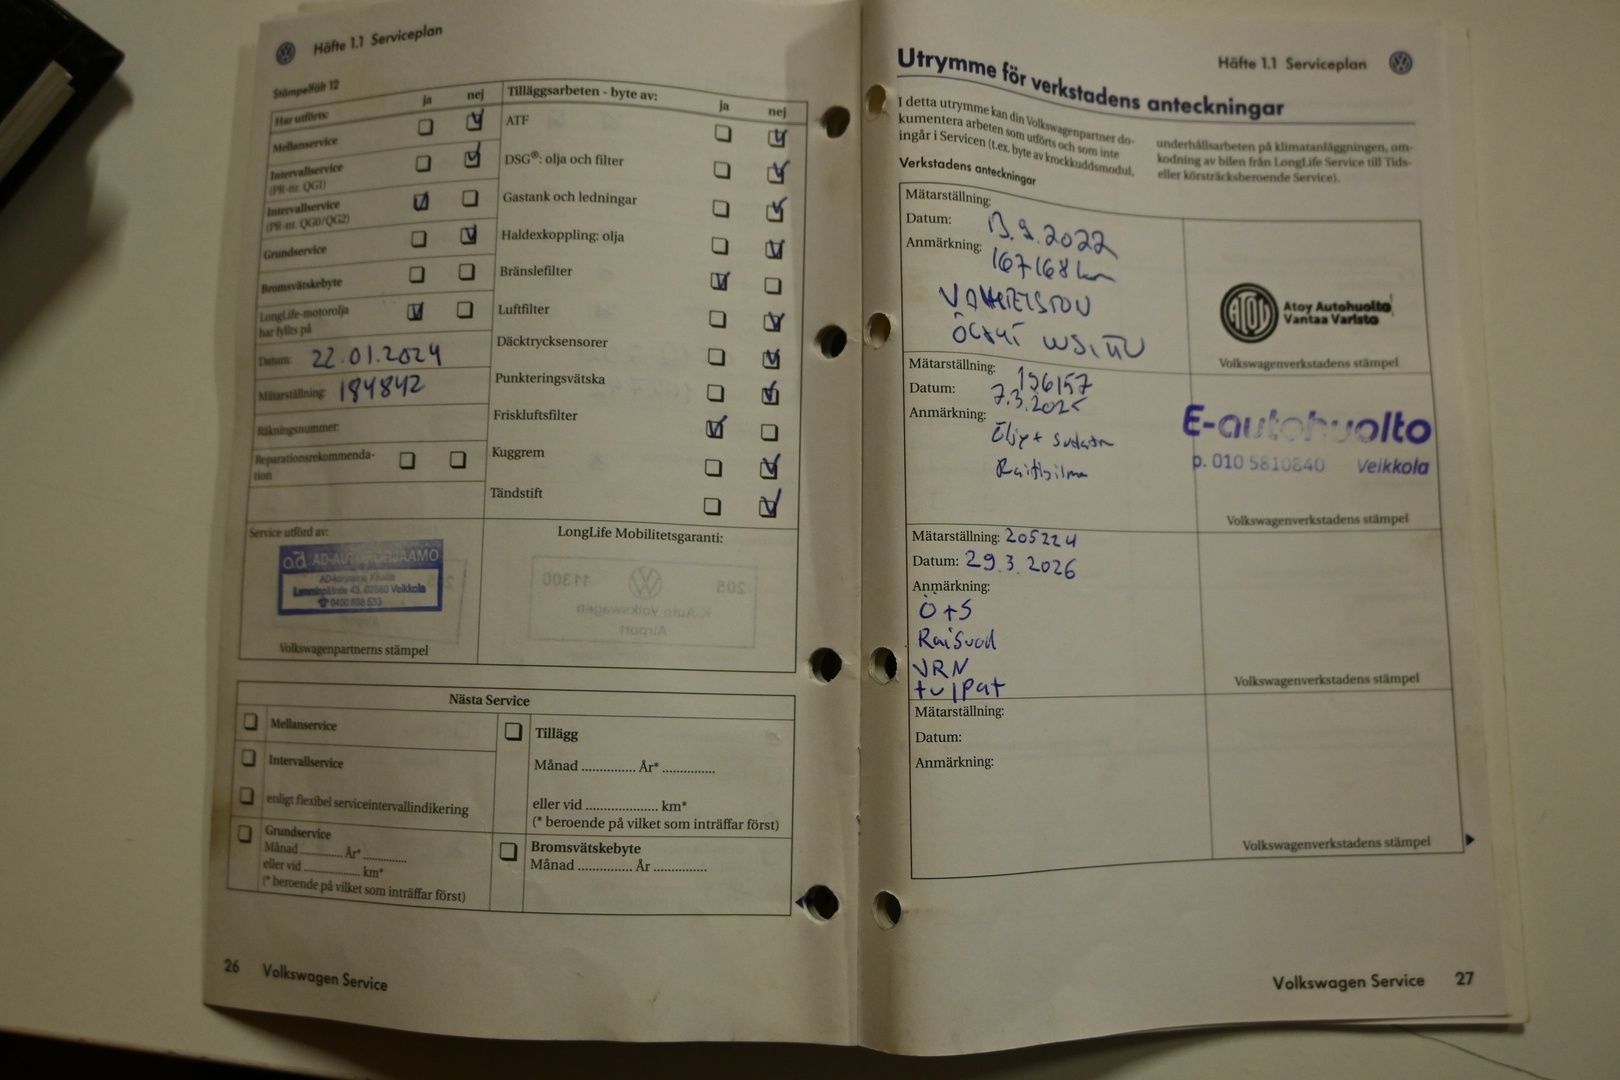 Häfte 1.1 Serviceplan
Stämpelfält 12
Har utförts: ja nej
Mellanservice
Intervallservice
(PR-nr. QG1)
Intervallservice
(PR-nr. QG0/QG2)
Grundservice
Bromsvätskebyte
LongLife-motorolja
har fyllts på
Datum: 22.01.2024
Mätarställning: 184842
Räkningsnummer:
Reparationsrekommenda-
tion
Service utförd av:
ad AD-AUTOKORJAAMO
Lamminpääntie 43, 02880 Veikkola
Volkswagenpartnerns stämpel
Tilläggsarbeten - byte av: ja nej
ATF
DSG®: olja och filter
Gastank och ledningar
Haldexkoppling: olja
Bränslefilter
Luftfilter
Däcktrycksensorer
Punkteringsvätska
Friskluftsfilter
Kuggrem
Tändstift
LongLife Mobilitetsgaranti:
205 11300
K-Auto Volkswagen
Airport
Nästa Service
Mellanservice
Intervallservice
enligt flexibel serviceintervallindikering
Grundservice
Månad ............ År* ............
eller vid ................ km*
(* beroende på vilket som inträffar först)
Tillägg
Månad ............... År* ...............
eller vid .................... km*
(* beroende på vilket som inträffar först)
Bromsvätskebyte
Månad ............... År ...............
26 Volkswagen Service
Häfte 1.1 Serviceplan
Utrymme för verkstadens anteckningar
I detta utrymme kan din Volkswagenpartner do-
kumentera arbeten som utförts och som inte
ingår i Servicen (t.ex. byte av krockkuddsmodul,
underhållsarbeten på klimatanläggningen, om-
kodning av bilen från LongLife Service till Tids-
eller körsträcksberoende Service).
Verkstadens anteckningar
Mätarställning:
Datum: 13.9.2022
Anmärkning: 167168 km
Atoy Autohuolto
Vantaa Varisto
Volkswagenverkstadens stämpel
Mätarställning: 196157
Datum: 7.3.2025
Anmärkning:
E-autohuolto
p. 010 5810840 Veikkola
Volkswagenverkstadens stämpel
Mätarställning: 205224
Datum: 29.3.2026
Anmärkning:
Ö+S
VRN
Volkswagenverkstadens stämpel
Mätarställning:
Datum:
Anmärkning:
Volkswagenverkstadens stämpel
Volkswagen Service 27